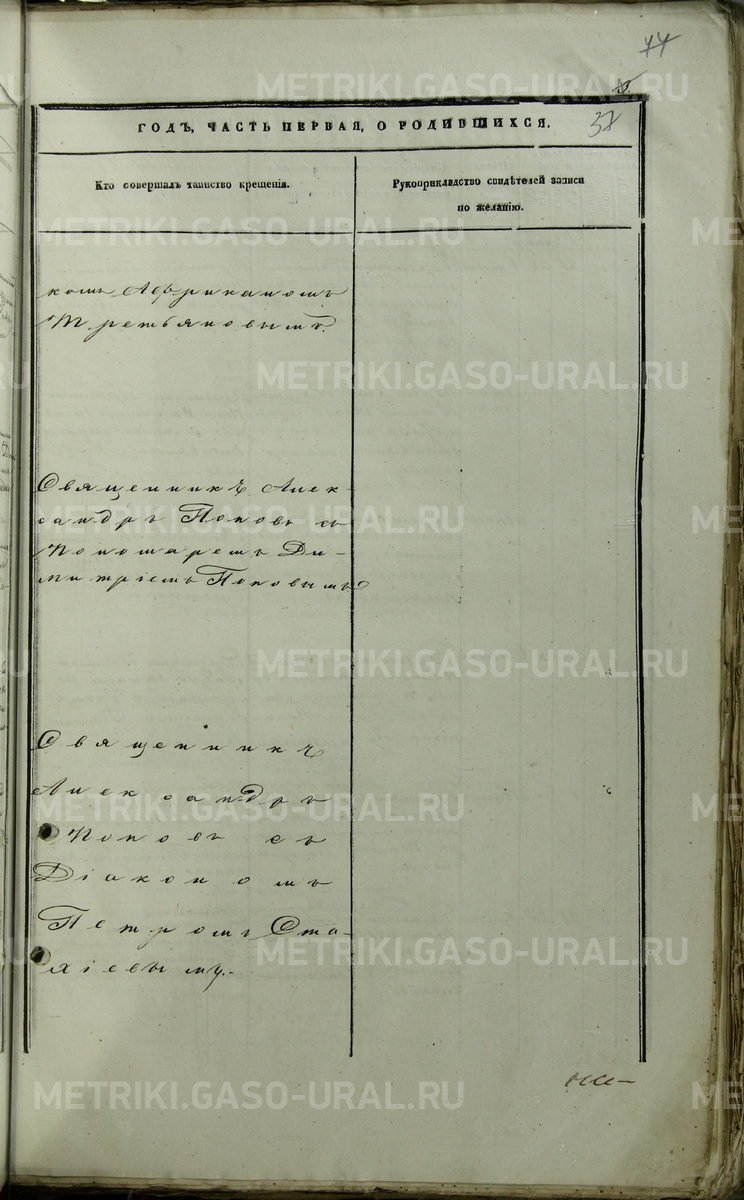 77
ГОДЪ, ЧАСТЬ ПЕРВАЯ, О РОДИВШИХСЯ.
Кто совершалъ таинство крещенія.
Рукоприкладство свидѣтелей записи
по желанію.
комъ Африканомъ
Третьяковымъ.
Священникъ Алек-
сандръ Поповъ съ
Пономаремъ Ди-
митріемъ Поповымъ
Священникъ
Александръ
Поповъ съ
Діакономъ
Петромъ Ста-
хіевымъ.
METRIKI.GASO-URAL.RU